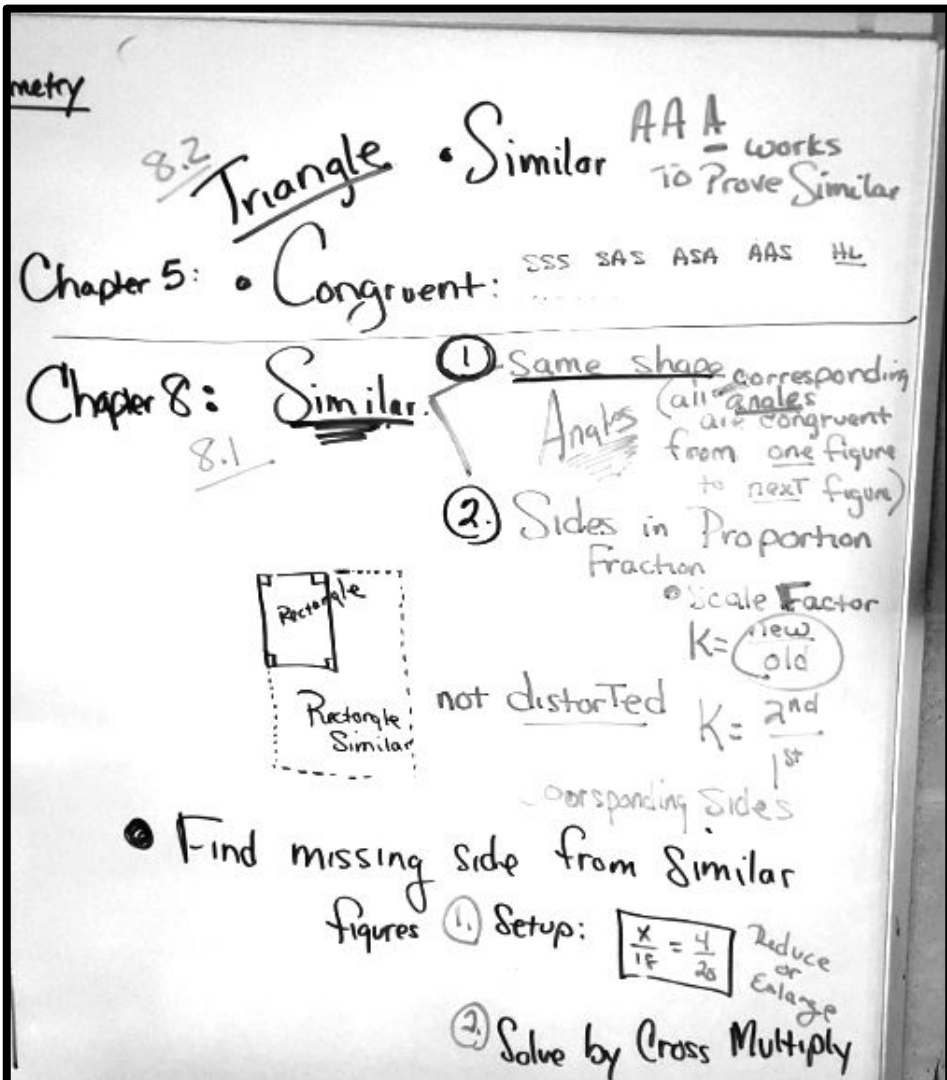 metry
8.2 Triangle • Similar AAA works
To Prove Similar
Chapter 5: • Congruent: SSS SAS ASA AAS HL
Chapter 8: Similar. ① Same shape
8.1
Angles
(all corresponding
angles
are congruent
from one figure
to next figure)
②. Sides in Proportion
Fraction
• Scale Factor
K= new
old
Rectangle
Rectangle
Similar
not distorted
K= 2nd
1st
Sides
• Find missing side from Similar
figures ①. Setup:
Reduce
or
Enlarge
② Solve by Cross Multiply